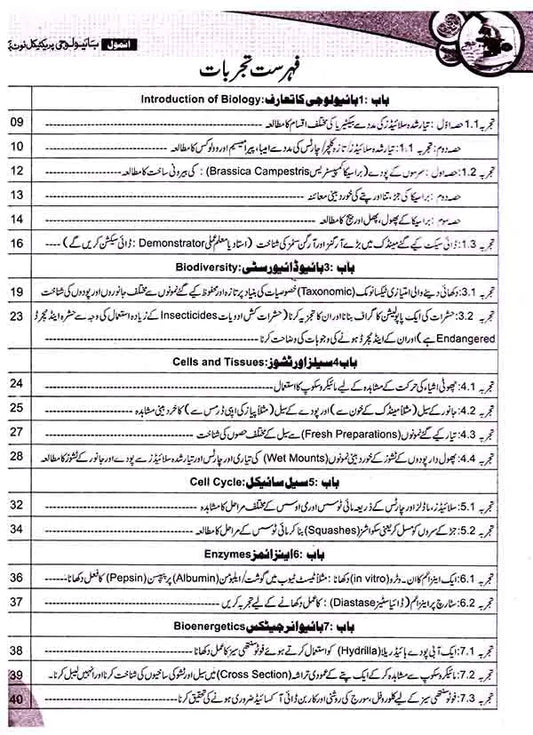 انمول بائیولوجی پریکٹیکل نوٹ بک
فہرست تجربات
باب 1: بائیولوجی کا تعارف: Introduction of Biology
تجربہ 1.1 حصہ اوّل : تیار شدہ سلائیڈز کی مدد سے بیکٹیریا کی مختلف اقسام کا مطالعہ 09
حصہ دوم: تجربہ 1.1: تیار شدہ سلائیڈز/ تازہ کلچر/ چارٹس کی مدد سے امیبا، پیرامیشیم اور وولوکس کا مطالعہ 10
تجربہ 1.2: حصہ اول : سرسوں کے پودے (براسیکا کمپیسٹریس Brassica Campestris) : کی بیرونی ساخت کا مطالعہ 12
حصہ دوم : براسیکا کی جڑ، تنا اور پتے کی خوردبینی معائنہ 13
حصہ سوم : براسیکا کے پھول، پھل اور بیج کا مطالعہ 14
تجربہ 1.3: ڈائی سیکٹ کیے گئے مینڈک میں بڑے آرگنز اور آرگن سسٹمز کی شناخت (استاد یا معلم عملی Demonstrator : ڈائی سیکشن کریں گے) 16
باب 3: بائیوڈائیورسٹی: Biodiversity
تجربہ 3.1: دکھائی دینے والی امتیازی ٹیکسانومک (Taxonomic) خصوصیات کی بنیاد پر تازہ اور محفوظ کیے گئے نمونوں سے مختلف جانوروں اور پودوں کی شناخت 19
تجربہ 3.2: حشرات کی ایک پاپولیشن کا گراف بنانا اور ان کا تجزیہ کرنا (حشرات کش ادویات Insecticides کے زیادہ استعمال کی وجہ سے حشرہ اینڈینجرڈ 23
Endangered ہے) اور ان کے اینڈینجرڈ ہونے کی وجوہات کی وضاحت کرنا
باب 4 سیلز اور ٹشوز: Cells and Tissues
تجربہ 4.1: چھوٹی اشیاء کی حرکت کے مشاہدہ کے لیے مائیکروسکوپ کا استعمال 24
تجربہ 4.2: جانور کے سیل (مثلاً مینڈک کے خون سے) اور پودے کے سیل (مثلاً پیاز کی اپی ڈرمس سے) کا خردبینی مشاہدہ 25
تجربہ 4.3: تیار کیے گئے نمونوں (Fresh Preparations) سے سیل کے مختلف حصوں کی شناخت 27
تجربہ 4.4: پھول دار پودوں کے ٹشوز کے خوردبینی نمونوں (Wet Mounts) کی تیاری اور چارٹس اور تیار شدہ سلائیڈز سے پودے اور جانور کے ٹشوز کا مطالعہ 28
باب 5: سیل سائیکل: Cell Cycle
تجربہ 5.1: سلائیڈز، ماڈلز اور چارٹس کے ذریعہ مائی ٹوسس اور می اوسس کے مختلف مراحل کا مشاہدہ 32
تجربہ 5.2: جڑ کے سروں کو مسل کر یعنی سکواشز (Squashes) بنا کر مائی ٹوسس کے مراحل کا مطالعہ 34
باب 6: اینزائمز Enzymes
تجربہ 6.1: ایک اینزائم کا ان۔وٹرو (in vitro) دکھانا : مثلاً ٹیسٹ ٹیوب میں گوشت/ ایلبومن (Albumin) پر پیپسن (Pepsin) کا فعل دکھانا 36
تجربہ 6.2: سٹارچ پر اینزائم (ڈائیاسٹیز Diastase) : کا عمل دکھانے کے لیے تجربہ کریں 37
باب 7: بائیوانرجیٹکس Bioenergetics
تجربہ 7.1: ایک آبی پودے ہائیڈریلا (Hydrilla) کو استعمال کرتے ہوئے فوٹو سنتھی سیز کا عمل دکھانا 38
تجربہ 7.2: مائیکروسکوپ سے مشاہدہ کر کے ایک پتے کے عمودی تراشہ (Cross Section) میں سیل اور ٹشو کی ساختوں کی شناخت کرنا اور انہیں لیبل کرنا۔ 39
تجربہ 7.3: فوٹو سنتھی سیز کے لیے کلوروفل، سورج کی روشنی اور کاربن ڈائی آکسائیڈ ضروری ہونے کی تحقیق کرنا 40